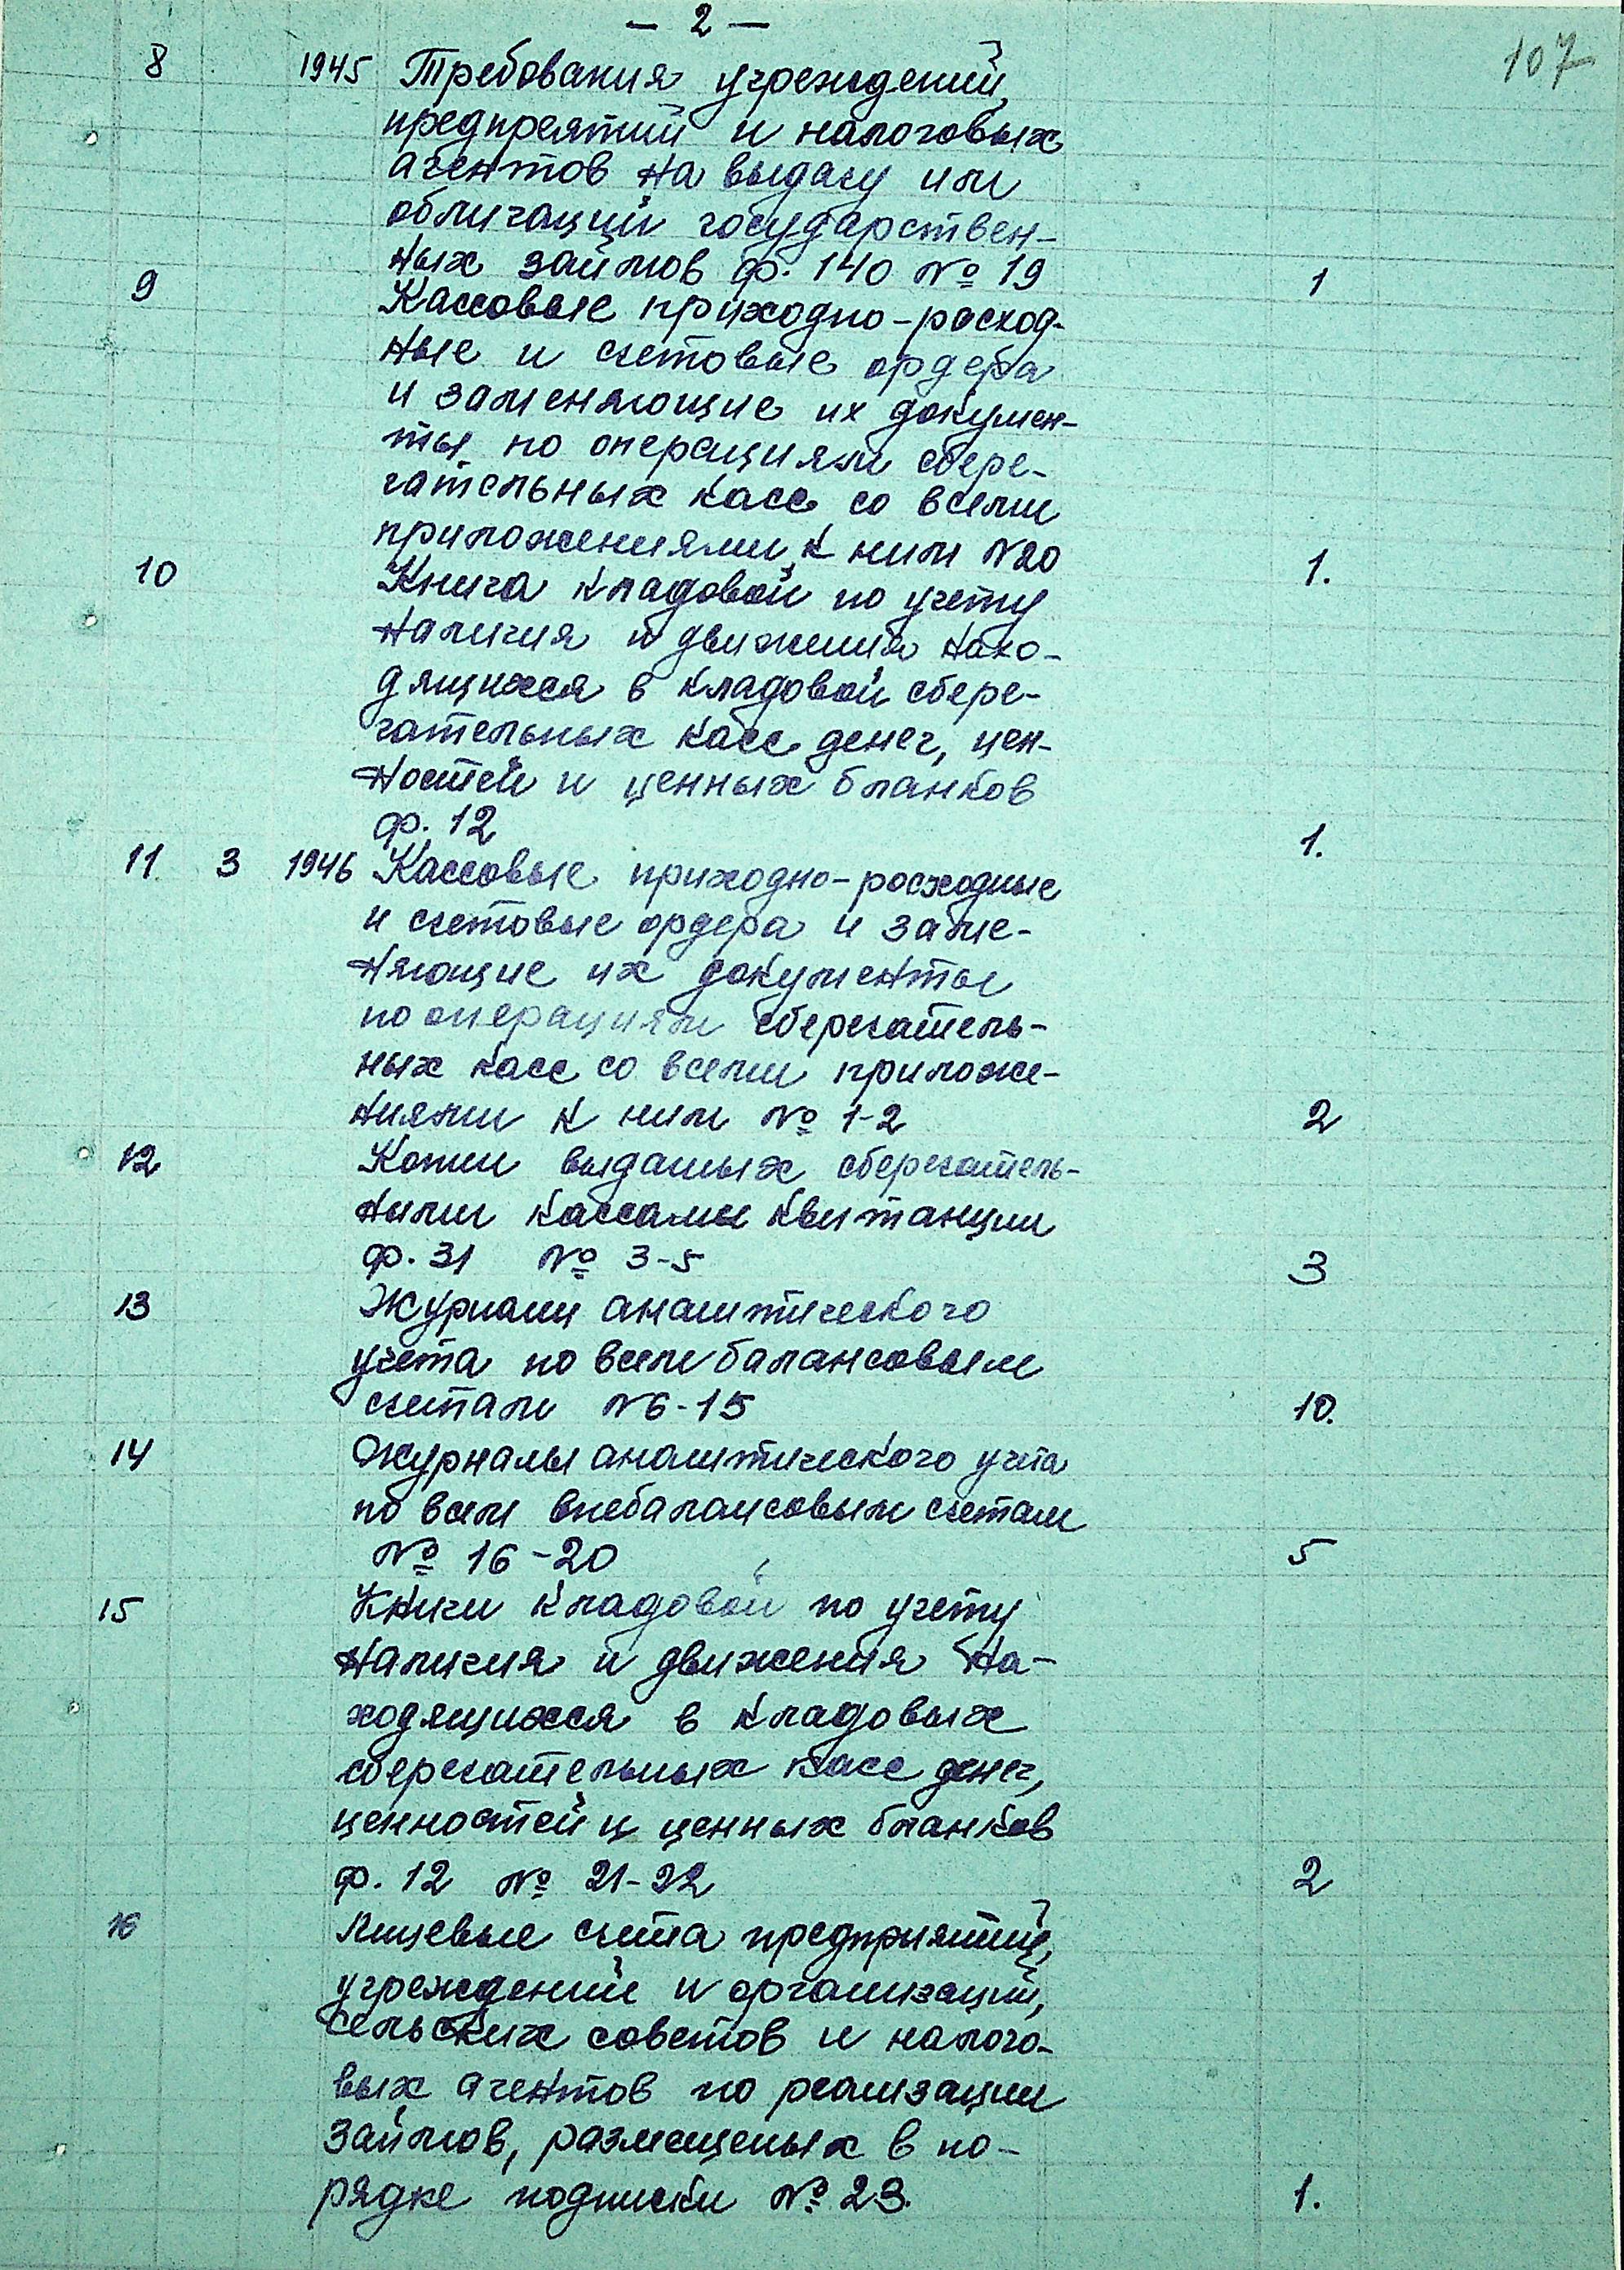 — 2 —
107
8 1945 Требования учреждений,
предпреятий и налоговых
агентов на выдачу им
облигаций государствен-
ных займов ф. 140 № 19 1
9 Кассовые приходно-расход-
ные и счетовые ордера
и заменяющие их докумен-
ты по операциям сбере-
гательных касс со всеми
приложениями к ним N20 1.
10 Книга кладовой по учету
наличия и движения нахо-
дящихся в кладовой сбере-
гательных касс денег, цен-
ностей и ценных бланков
ф. 12 1.
11. 3 1946 Кассовые приходно-расходные
и счетовые ордера и заме-
няющие их документы
по операциям сберегатель-
ных касс со всеми приложе-
ниями к ним № 1-2 2
12 Копии выданых сберегатель-
ными кассами квитанции
ф. 31 № 3-5 3
13 Журналы аналитического
учета по всем балансовым
счетам N6-15 10.
14 Журналы аналитического учета
по всем внебалансовым счетам
№ 16-20 5
15 Книги кладовой по учету
наличия и движения на-
ходящихся в кладовых
сберегательных касс денег,
ценностей и ценных бланков
ф. 12 № 21-22 2
16 Лицевые счета предприятий,
учреждений и организаций,
сельских советов и налого-
вых агентов по реализации
займов, размещеных в по-
рядке подписки № 23. 1.